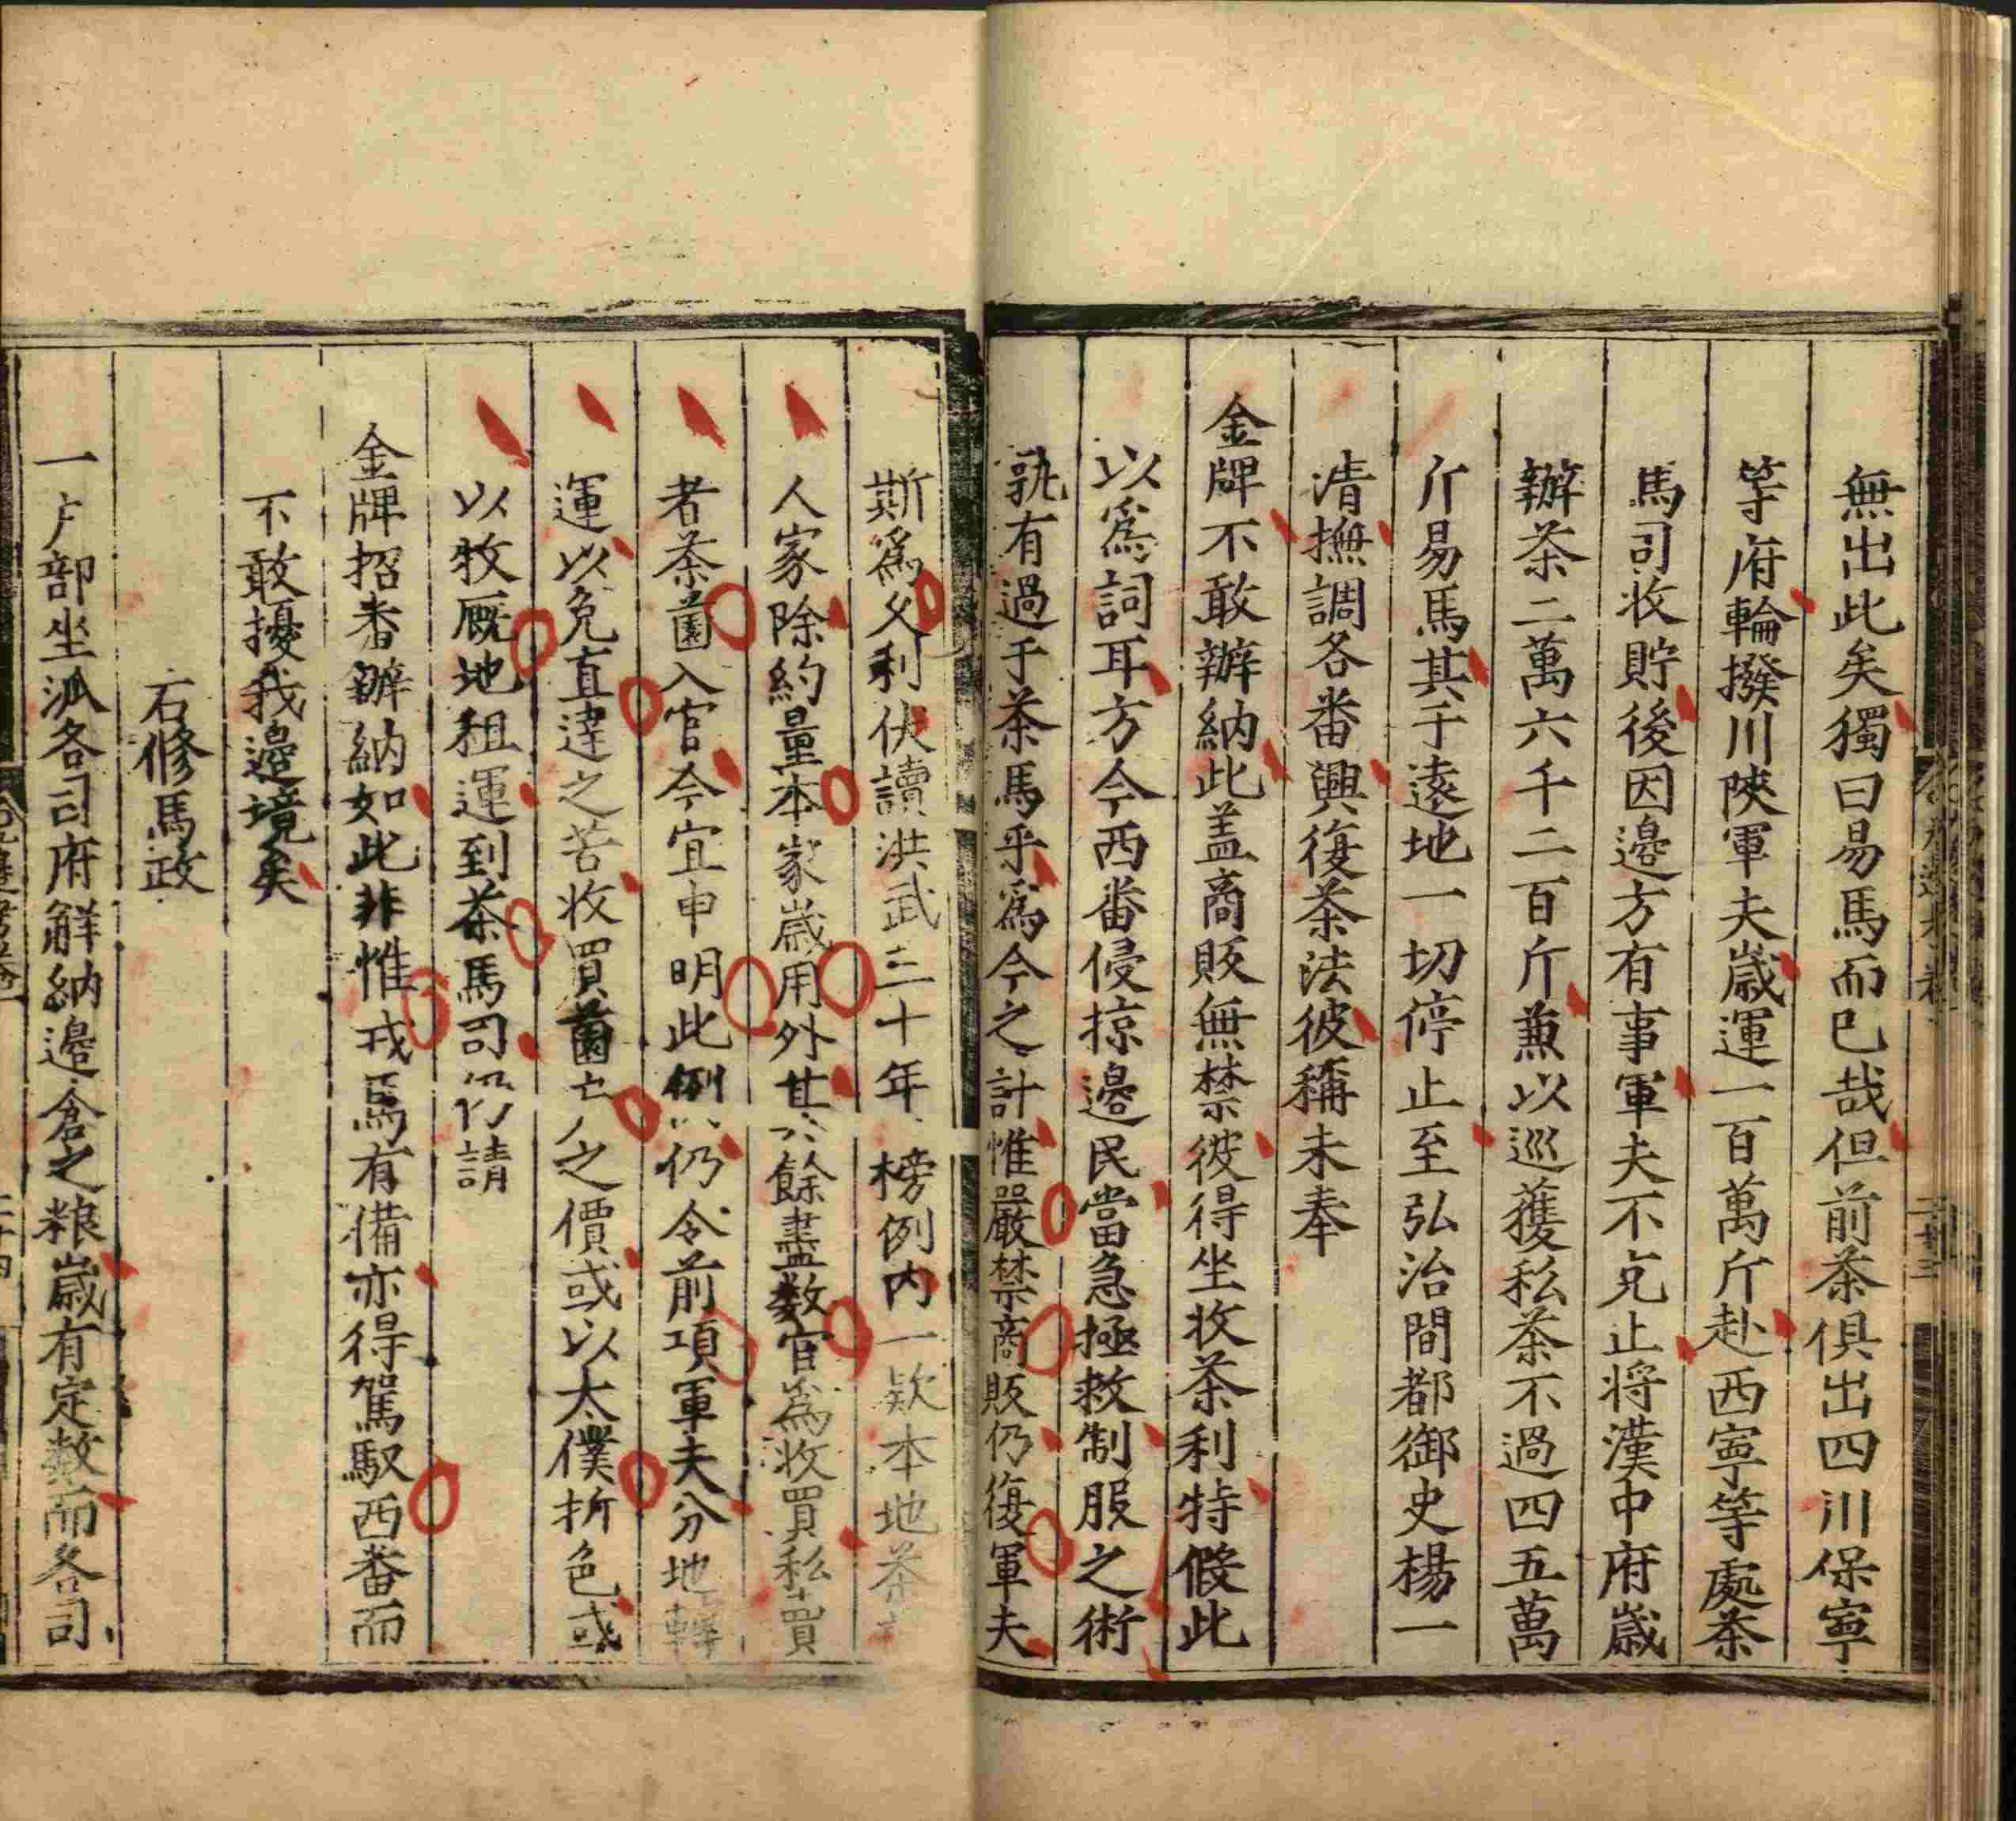 無出此矣獨曰易馬而已哉但前茶俱出四川保寧
等府輪撥川陝軍夫歲運一百萬斤赴西寧等處茶
馬司收貯後因邊方有事軍夫不免止将漢中府歲
辦茶二萬六千二百斤兼以巡獲私茶不過四五萬
斤易馬其于遠地一切停止至弘治間都御史楊一
清撫調各番興復茶法彼稱未奉
金牌不敢辦納此盖商販無禁彼得坐收茶利特假此
以爲詞耳方今西番侵掠邊民當急極救制服之術
孰有過于茶馬乎爲今之計惟嚴禁商販仍復軍夫
斯爲父利伏讀洪武三十年榜例内一欵本地茶
人家除約量本家歲用外其餘盡数官爲收買私買
者茶薗入官今宜申明此例仍令前項軍夫分地轉
運以免直達之苦收買薗之價或以太僕折色或
以牧厩地租運到茶馬司仍請
金牌招番辦納如此非惟戎馬有備亦得駕馭西番而
不敢擾我邊境矣
右修馬政
一户部坐派各司府觧納邊倉之粮歲有定数而各司